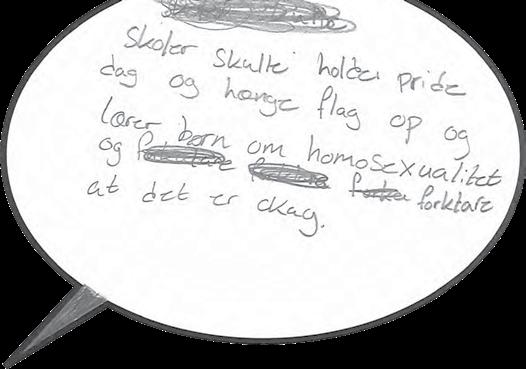 Skoler skulle holder pride
dag og hænge flag op og
lærer børn om homosexualitet
og forklare
at det er okay.